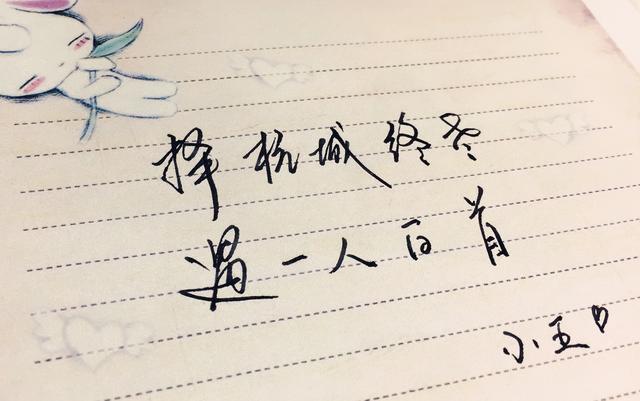 择杭城终老
遇一人百首
小王♡